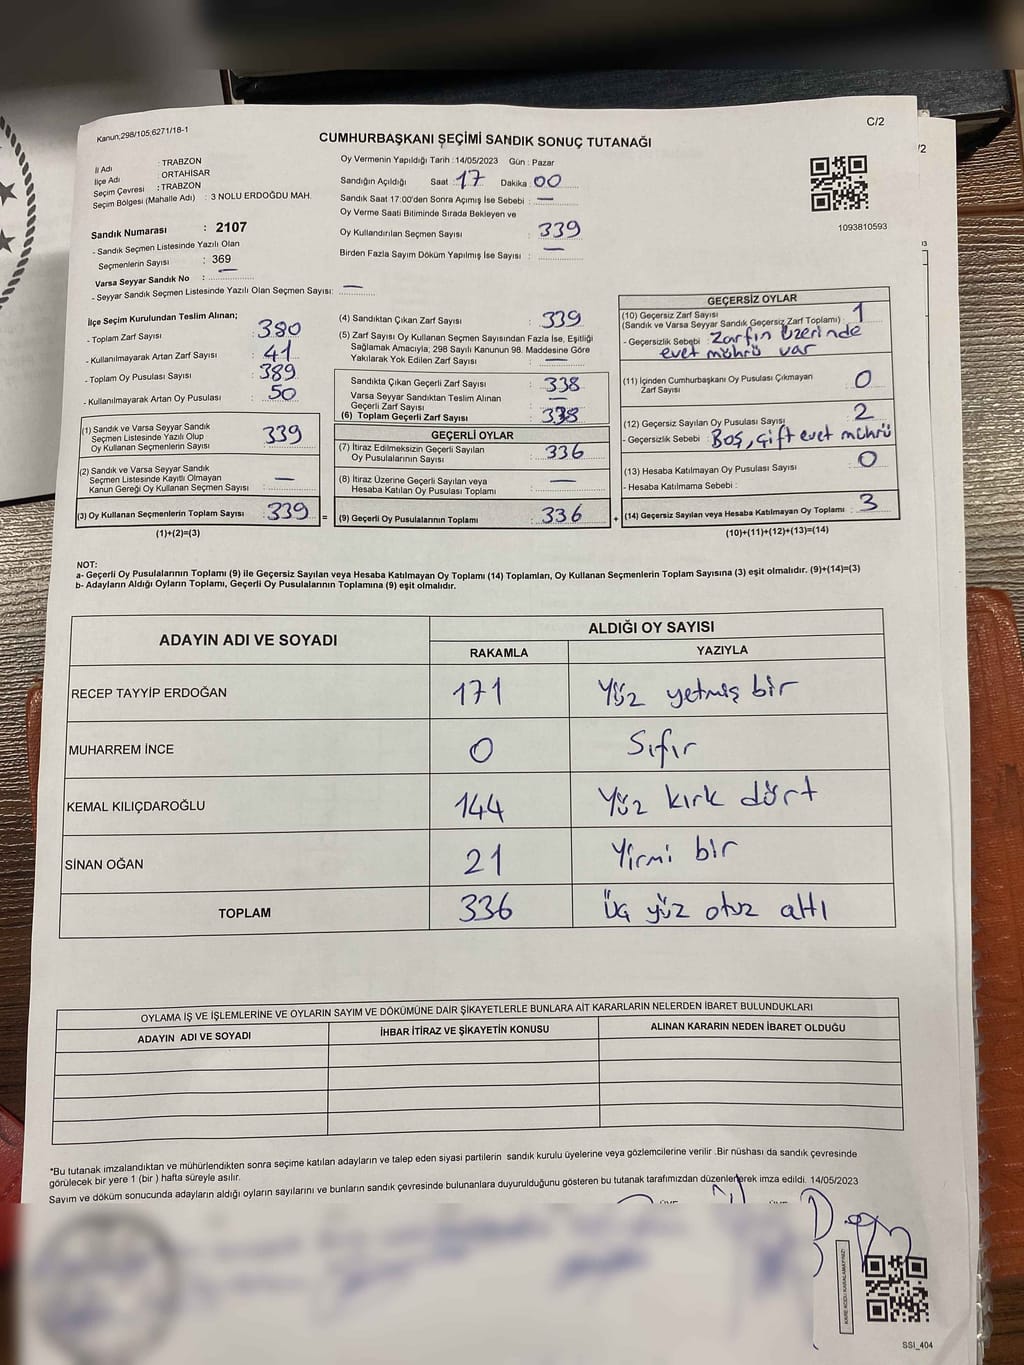 Kanun;298/105;6271/18-1
C/2
CUMHURBAŞKANI SEÇİMİ SANDIK SONUÇ TUTANAĞI
İl Adı : TRABZON
İlçe Adı : ORTAHİSAR
Seçim Çevresi : TRABZON
Seçim Bölgesi (Mahalle Adı) : 3 NOLU ERDOĞDU MAH.
Sandık Numarası : 2107
- Sandık Seçmen Listesinde Yazılı Olan
Seçmenlerin Sayısı : 369
Varsa Seyyar Sandık No : —
- Seyyar Sandık Seçmen Listesinde Yazılı Olan Seçmen Sayısı: —
Oy Vermenin Yapıldığı Tarih : 14/05/2023 Gün : Pazar
Sandığın Açıldığı Saat : 17 Dakika : 00
Sandık Saat 17:00'den Sonra Açımış İse Sebebi : —
Oy Verme Saati Bitiminde Sırada Bekleyen ve
Oy Kullandırılan Seçmen Sayısı : 339
Birden Fazla Sayım Döküm Yapılmış İse Sayısı : —
1093810593
İlçe Seçim Kurulundan Teslim Alınan;
- Toplam Zarf Sayısı : 380
- Kullanılmayarak Artan Zarf Sayısı : 41
- Toplam Oy Pusulası Sayısı : 389
- Kullanılmayarak Artan Oy Pusulası : 50
(1) Sandık ve Varsa Seyyar Sandık
Seçmen Listesinde Yazılı Olup
Oy Kullanan Seçmenlerin Sayısı : 339
(2) Sandık ve Varsa Seyyar Sandık
Seçmen Listesinde Kayıtlı Olmayan
Kanun Gereği Oy Kullanan Seçmen Sayısı : —
(3) Oy Kullanan Seçmenlerin Toplam Sayısı : 339 =
(1)+(2)=(3)
(4) Sandıktan Çıkan Zarf Sayısı : 339
(5) Zarf Sayısı Oy Kullanan Seçmen Sayısından Fazla İse, Eşitliği
Sağlamak Amacıyla, 298 Sayılı Kanunun 98. Maddesine Göre
Yakılarak Yok Edilen Zarf Sayısı : —
Sandıkta Çıkan Geçerli Zarf Sayısı : 338
Varsa Seyyar Sandıktan Teslim Alınan
Geçerli Zarf Sayısı : —
(6) Toplam Geçerli Zarf Sayısı : 338
GEÇERLİ OYLAR
(7) İtiraz Edilmeksizin Geçerli Sayılan
Oy Pusulalarının Sayısı : 336
(8) İtiraz Üzerine Geçerli Sayılan veya
Hesaba Katılan Oy Pusulası Toplamı : —
(9) Geçerli Oy Pusulalarının Toplamı : 336 +
GEÇERSİZ OYLAR
(10) Geçersiz Zarf Sayısı
(Sandık ve Varsa Seyyar Sandık Geçersiz Zarf Toplamı) : 1
- Geçersizlik Sebebi : Zarfın üzerinde
evet mührü var
(11) İçinden Cumhurbaşkanı Oy Pusulası Çıkmayan
Zarf Sayısı : 0
(12) Geçersiz Sayılan Oy Pusulası Sayısı : 2
- Geçersizlik Sebebi : Boş, çift evet mührü
(13) Hesaba Katılmayan Oy Pusulası Sayısı : 0
- Hesaba Katılmama Sebebi :
(14) Geçersiz Sayılan veya Hesaba Katılmayan Oy Toplamı : 3
(10)+(11)+(12)+(13)=(14)
NOT:
a- Geçerli Oy Pusulalarının Toplamı (9) ile Geçersiz Sayılan veya Hesaba Katılmayan Oy Toplamı (14) Toplamları, Oy Kullanan Seçmenlerin Toplam Sayısına (3) eşit olmalıdır. (9)+(14)=(3)
b- Adayların Aldığı Oyların Toplamı, Geçerli Oy Pusulalarının Toplamına (9) eşit olmalıdır.
ADAYIN ADI VE SOYADI
ALDIĞI OY SAYISI
RAKAMLA YAZIYLA
RECEP TAYYİP ERDOĞAN 171 Yüz yetmiş bir
MUHARREM İNCE 0 Sıfır
KEMAL KILIÇDAROĞLU 144 Yüz kırk dört
SİNAN OĞAN 21 Yirmi bir
TOPLAM 336 Üç yüz otuz altı
OYLAMA İŞ VE İŞLEMLERİNE VE OYLARIN SAYIM VE DÖKÜMÜNE DAİR ŞİKAYETLERLE BUNLARA AİT KARARLARIN NELERDEN İBARET BULUNDUKLARI
ADAYIN ADI VE SOYADI İHBAR İTİRAZ VE ŞİKAYETİN KONUSU ALINAN KARARIN NEDEN İBARET OLDUĞU
*Bu tutanak imzalandıktan ve mühürlendikten sonra seçime katılan adayların ve talep eden siyasi partilerin sandık kurulu üyelerine veya gözlemcilerine verilir .Bir nüshası da sandık çevresinde
görülecek bir yere 1 (bir ) hafta süreyle asılır.
Sayım ve döküm sonucunda adayların aldığı oyların sayılarını ve bunların sandık çevresinde bulunanlara duyurulduğunu gösteren bu tutanak tarafımızdan düzenlenerek imza edildi. 14/05/2023
KARE KODU KARALAMAYINIZ!
SSI_404
/2